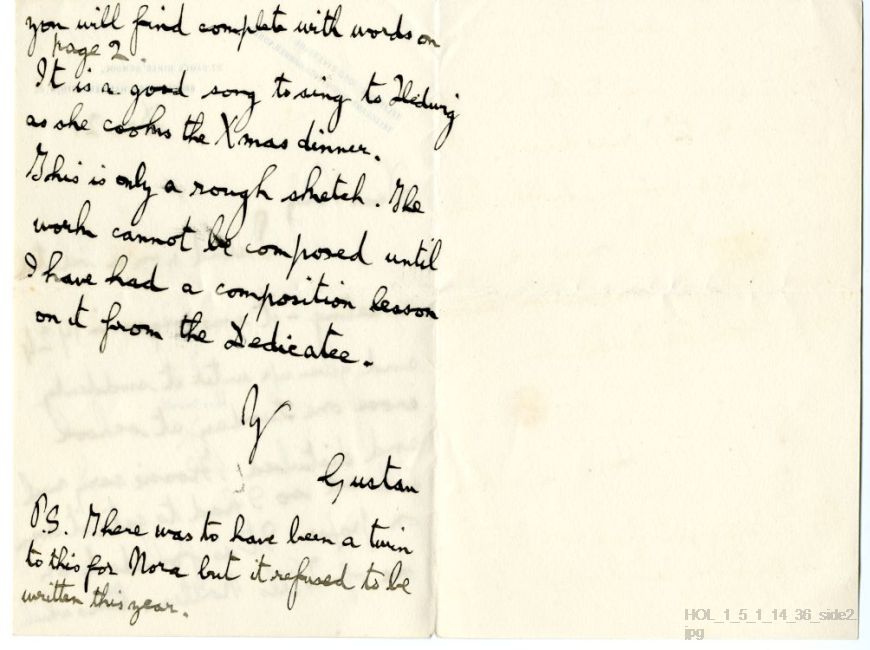 you will find complete with words on
page 2.
It is a good song to sing to Hedwig
as she cooks the Xmas dinner.
This is only a rough sketch. The
work cannot be composed until
I have had a composition lesson
on it from the Dedicatee.
Y
Gustav
P.S. There was to have been a twin
to this for Nora but it refused to be
written this year.
HOL_1_5_1_14_36_side2.
jpg